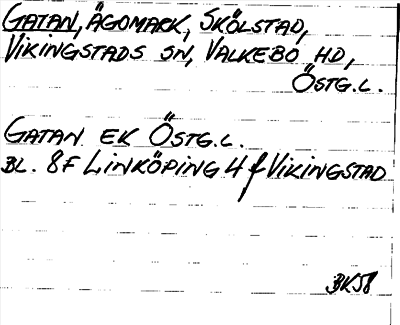 GATAN, ÄGOMARK, SKÖLSTAD,
VIKINGSTADS SN, VALKEBO HD,
ÖSTG.L.
GATAN EK ÖSTG.L.
BL. 8F LINKÖPING 4 f VIKINGSTAD
BK58